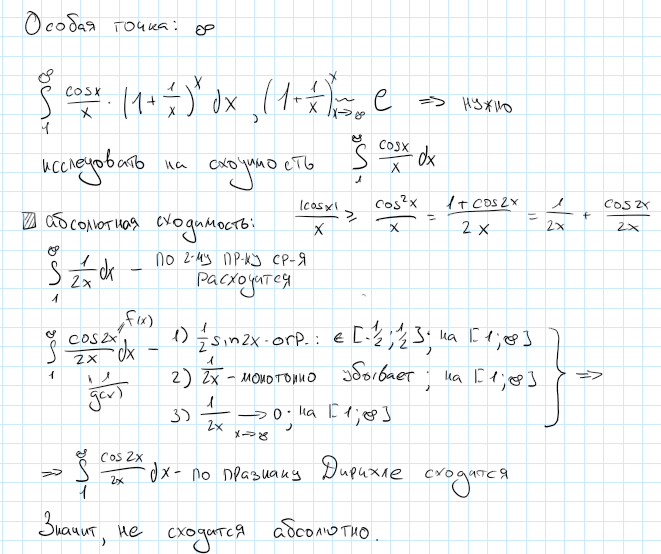 Особая точка: ∞
∫₁^∞ cosx/x · (1 + 1/x)^x dx, (1 + 1/x)^x ~ x→∞ e ⇒ нужно
исследовать на сходимость ∫₁^∞ cosx/x dx
абсолютная сходимость: |cosx|/x ≥ cos²x/x = 1+cos2x/2x = 1/2x + cos2x/2x
∫₁^∞ 1/2x dx – по 2-му пр-ку ср-я
расходится
∫₁^∞ cos2x/2x dx – f(x) g(x) 1) 1/2 sin2x - огр.: ∈ [-1/2; 1/2]; на [1; ∞]
2) 1/2x – монотонно убывает; на [1; ∞]
3) 1/2x → 0; на [1; ∞] x→∞ } ⇒
⇒ ∫₁^∞ cos2x/2x dx – по празнаку Дирихле сходится
Значит, не сходится абсолютно.